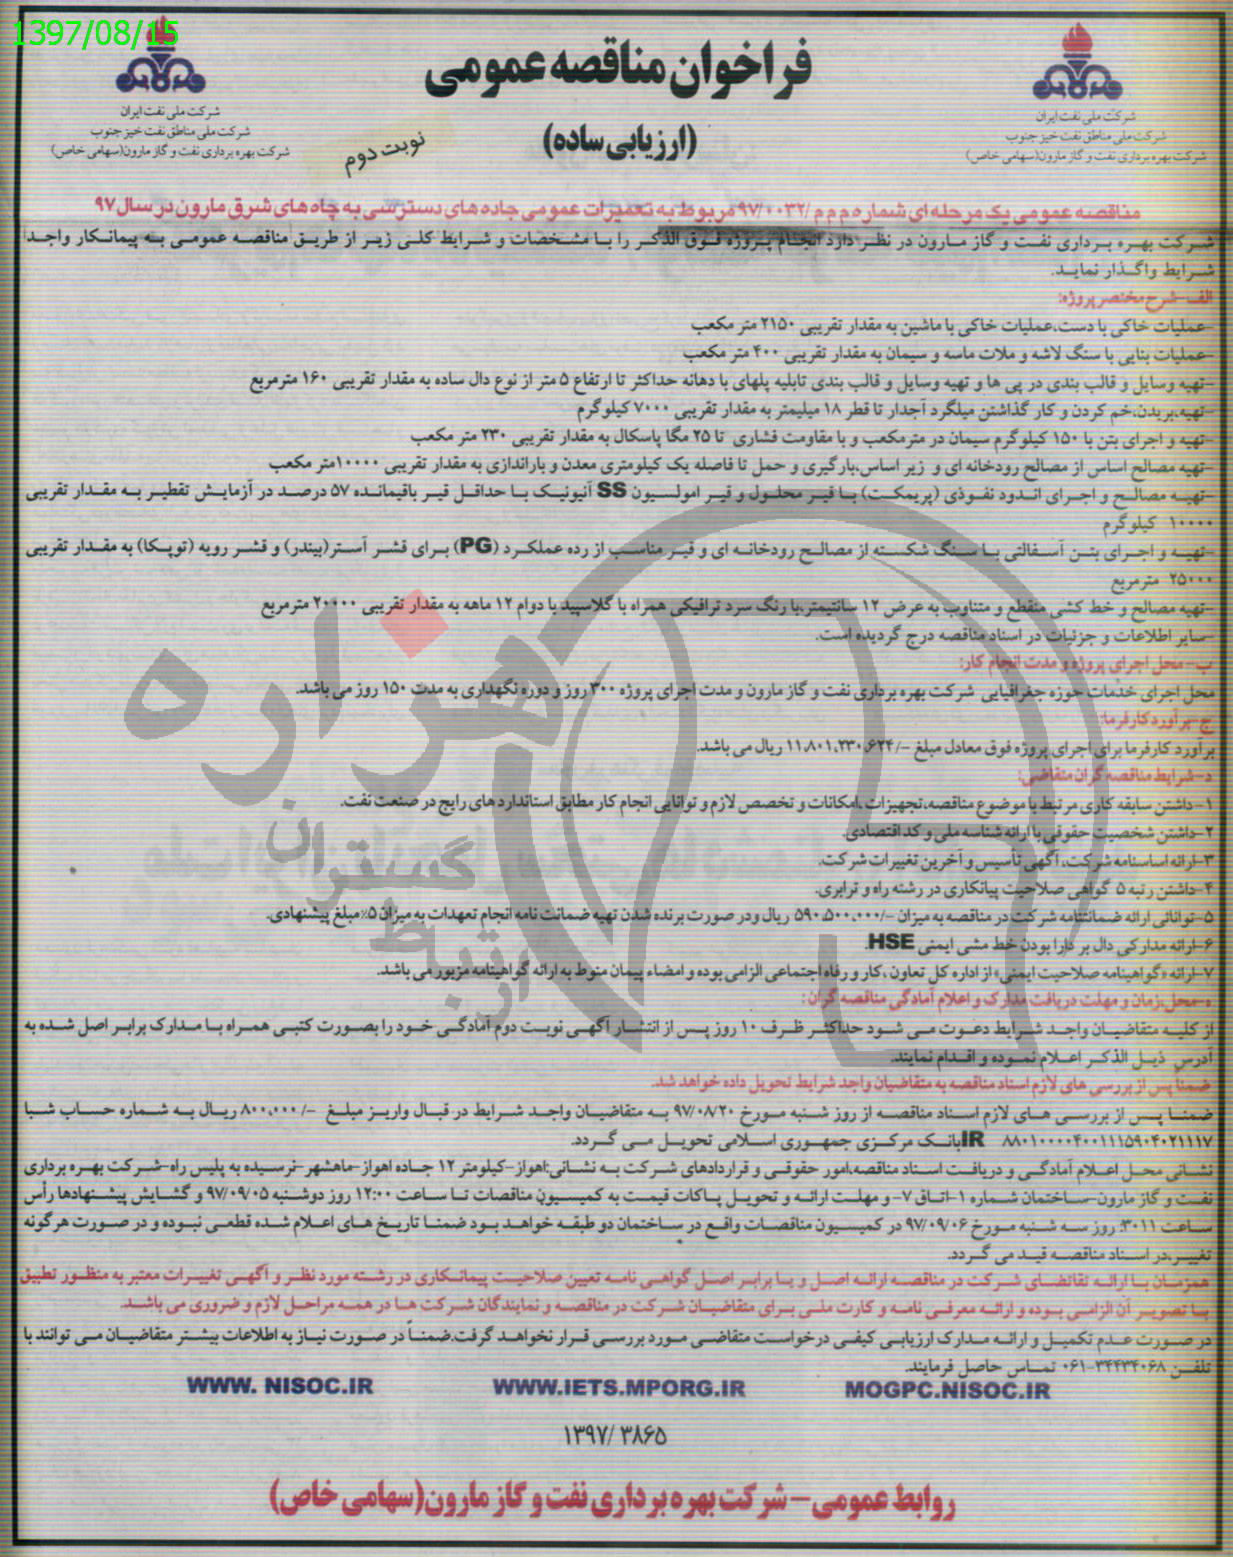 1397/08/15
فراخوان مناقصه عمومی
(ارزیابی ساده)
نوبت دوم
شرکت ملی نفت ایران
شرکت ملی مناطق نفت خیز جنوب
شرکت بهره برداری نفت و گاز مارون(سهامی خاص)
شرکت ملی نفت ایران
شرکت ملی مناطق نفت خیز جنوب
شرکت بهره برداری نفت و گاز مارون(سهامی خاص)
مناقصه عمومی یک مرحله ای شماره م م م/۹۷/۰۰۳۲ مربوط به تعمیرات عمومی جاده های دسترسی به چاه های شرق مارون در سال ۹۷
شرکت بهره برداری نفت و گاز مارون در نظر دارد انجام پروژه فوق الذکر را با مشخصات و شرایط کلی زیر از طریق مناقصه عمومی به پیمانکار واجد
شرایط واگذار نماید.
الف-شرح مختصر پروژه:
-عملیات خاکی با دست،عملیات خاکی با ماشین به مقدار تقریبی ۲۱۵۰ متر مکعب
-عملیات بنایی با سنگ لاشه و ملات ماسه و سیمان به مقدار تقریبی ۴۰۰ متر مکعب
-تهیه وسایل و قالب بندی در پی ها و تهیه وسایل و قالب بندی تابلیه پلهای با دهانه حداکثر تا ارتفاع ۵ متر از نوع دال ساده به مقدار تقریبی ۱۶۰ مترمربع
-تهیه،بریدن،خم کردن و کار گذاشتن میلگرد آجدار تا قطر ۱۸ میلیمتر به مقدار تقریبی ۷۰۰۰ کیلوگرم
-تهیه و اجرای بتن با ۱۵۰ کیلوگرم سیمان در مترمکعب و با مقاومت فشاری تا ۲۵ مگا پاسکال به مقدار تقریبی ۲۳۰ متر مکعب
-تهیه مصالح اساس از مصالح رودخانه ای و زیر اساس،بارگیری و حمل تا فاصله یک کیلومتری معدن و باراندازی به مقدار تقریبی ۱۰۰۰۰متر مکعب
-تهیه مصالح و اجرای اندود نفوذی (پریمکت) با قیر محلول و قیر امولسیون SS آنیونیک با حداقل قیر باقیمانده ۵۷ درصد در آزمایش تقطیر به مقدار تقریبی
۱۰۰۰۰ کیلوگرم
-تهیه و اجرای بتن آسفالتی با سنگ شکسته از مصالح رودخانه ای و قیر مناسب از رده عملکرد (PG) برای قشر آستر(بیندر) و قشر رویه (توپکا) به مقدار تقریبی
۲۵۰۰۰ مترمربع
-تهیه مصالح و خط کشی منقطع و متناوب به عرض ۱۲ سانتیمتر،با رنگ سرد ترافیکی همراه با گلاسپید با دوام ۱۲ ماهه به مقدار تقریبی ۲۰۰۰۰ مترمربع
-سایر اطلاعات و جزئیات در اسناد مناقصه درج گردیده است.
ب- محل اجرای پروژه و مدت انجام کار:
محل اجرای خدمات حوزه جغرافیایی شرکت بهره برداری نفت و گاز مارون و مدت اجرای پروژه ۳۰۰ روز و دوره نگهداری به مدت ۱۵۰ روز می باشد.
ج-برآورد کارفرما:
برآورد کارفرما برای اجرای پروژه فوق معادل مبلغ -/۱۱،۸۰۱،۲۳۰،۶۲۴ ریال می باشد.
د-شرایط مناقصه گران متقاضی:
۱-داشتن سابقه کاری مرتبط با موضوع مناقصه،تجهیزات ،امکانات و تخصص لازم و توانایی انجام کار مطابق استانداردهای رایج در صنعت نفت.
۲-داشتن شخصیت حقوقی با ارائه شناسه ملی و کد اقتصادی.
۳-ارائه اساسنامه شرکت، آگهی تأسیس و آخرین تغییرات شرکت.
۴-داشتن رتبه ۵ گواهی صلاحیت پیمانکاری در رشته راه و ترابری.
۵-توانائی ارائه ضمانتنامه شرکت در مناقصه به میزان -/۵۹۰،۵۰۰،۰۰۰ ریال ودر صورت برنده شدن تهیه ضمانت نامه انجام تعهدات به میزان ۵٪مبلغ پیشنهادی.
۶-ارائه مدارکی دال بر دارا بودن خط مشی ایمنی HSE.
۷-ارائه «گواهینامه صلاحیت ایمنی» از اداره کل تعاون ،کار و رفاه اجتماعی الزامی بوده و امضاء پیمان منوط به ارائه گواهینامه مزبور می باشد.
ه-محل،زمان و مهلت دریافت مدارک و اعلام آمادگی مناقصه گران:
از کلیه متقاضیان واجد شرایط دعوت می شود حداکثر ظرف ۱۰ روز پس از انتشار آگهی نوبت دوم آمادگی خود را بصورت کتبی همراه با مدارک برابر اصل شده به
آدرس ذیل الذکر اعلام نموده و اقدام نمایند.
ضمنا پس از بررسی های لازم اسناد مناقصه به متقاضیان واجد شرایط تحویل داده خواهد شد.
ضمنا پس از بررسی های لازم اسناد مناقصه از روز شنبه مورخ ۹۷/۰۸/۲۰ به متقاضیان واجد شرایط در قبال واریز مبلغ -/۸۰۰،۰۰۰ ریال به شماره حساب شبا
۸۸۰۱۰۰۰۰۴۰۰۱۱۱۵۹۰۴۰۲۱۱۱۷ IRبانک مرکزی جمهوری اسلامی تحویل می گردد.
نشانی محل اعلام آمادگی و دریافت اسناد مناقصه،امور حقوقی و قراردادهای شرکت به نشانی:اهواز-کیلومتر ۱۲ جاده اهواز-ماهشهر-نرسیده به پلیس راه-شرکت بهره برداری
نفت و گاز مارون-ساختمان شماره ۱-اتاق ۷- و مهلت ارائه و تحویل پاکات قیمت به کمیسیون مناقصات تا ساعت ۱۲:۰۰ روز دوشنبه ۹۷/۰۹/۰۵ و گشایش پیشنهادها رأس
ساعت ۳۰۱۱: روز سه شنبه مورخ ۹۷/۰۹/۰۶ در کمیسیون مناقصات واقع در ساختمان دو طبقه خواهد بود ضمنا تاریخ های اعلام شده قطعی نبوده و در صورت هرگونه
تغییر،در اسناد مناقصه قید می گردد.
همزمان با ارائه تقاضای شرکت در مناقصه ارائه اصل و یا برابر اصل گواهی نامه تعیین صلاحیت پیمانکاری در رشته مورد نظر و آگهی تغییرات معتبر به منظور تطبیق
با تصویر آن الزامی بوده و ارائه معرفی نامه و کارت ملی برای متقاضیان شرکت در مناقصه و نمایندگان شرکت ها در همه مراحل لازم و ضروری می باشد.
در صورت عدم تکمیل و ارائه مدارک ارزیابی کیفی درخواست متقاضی مورد بررسی قرار نخواهد گرفت.ضمناً در صورت نیاز به اطلاعات بیشتر متقاضیان می توانند با
تلفن ۳۴۴۳۴۰۶۸-۰۶۱ تماس حاصل فرمایند.
WWW. NISOC.IR WWW.IETS.MPORG.IR MOGPC.NISOC.IR
۱۳۹۷/۳۸۶۵
روابط عمومی- شرکت بهره برداری نفت و گاز مارون(سهامی خاص)
هزاره
گستران
ارتباط